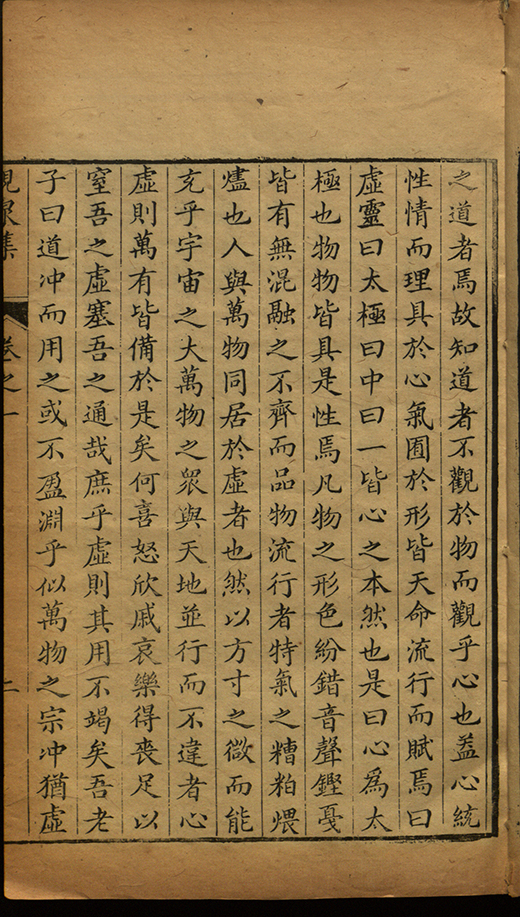 之道者焉故知道者不觀於物而觀乎心也葢心統
性情而理具於心氣囿於形皆天命流行而賦焉曰
虛靈曰太極曰中曰一皆心之本然也是曰心爲太
極也物物皆具是性焉凡物之形色紛錯音聲鏗戞
皆有無混融之不齊而品物流行者特氣之糟粕煨
燼也人與萬物同居於虛者也然以方寸之微而能
充乎宇宙之大萬物之衆與天地並行而不違者心
虛則萬有皆備於是矣何喜怒欣戚哀樂得喪足以
窒吾之虛塞吾之通哉庶乎虛則其用不竭矣吾老
子曰道冲而用之或不盈淵乎似萬物之宗冲猶虛
峴泉集 卷之一 二